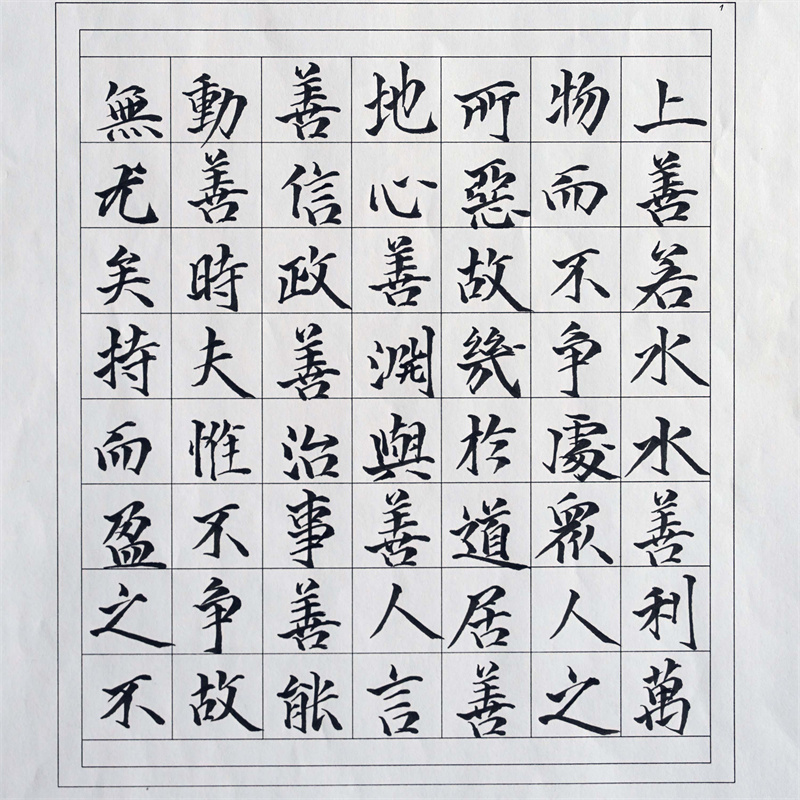 上善若水水善利萬
物而不争處眾人之
所惡故幾於道居善
地心善淵與善人言
善信政善治事善能
動善時夫惟不争故
無尤矣持而盈之不